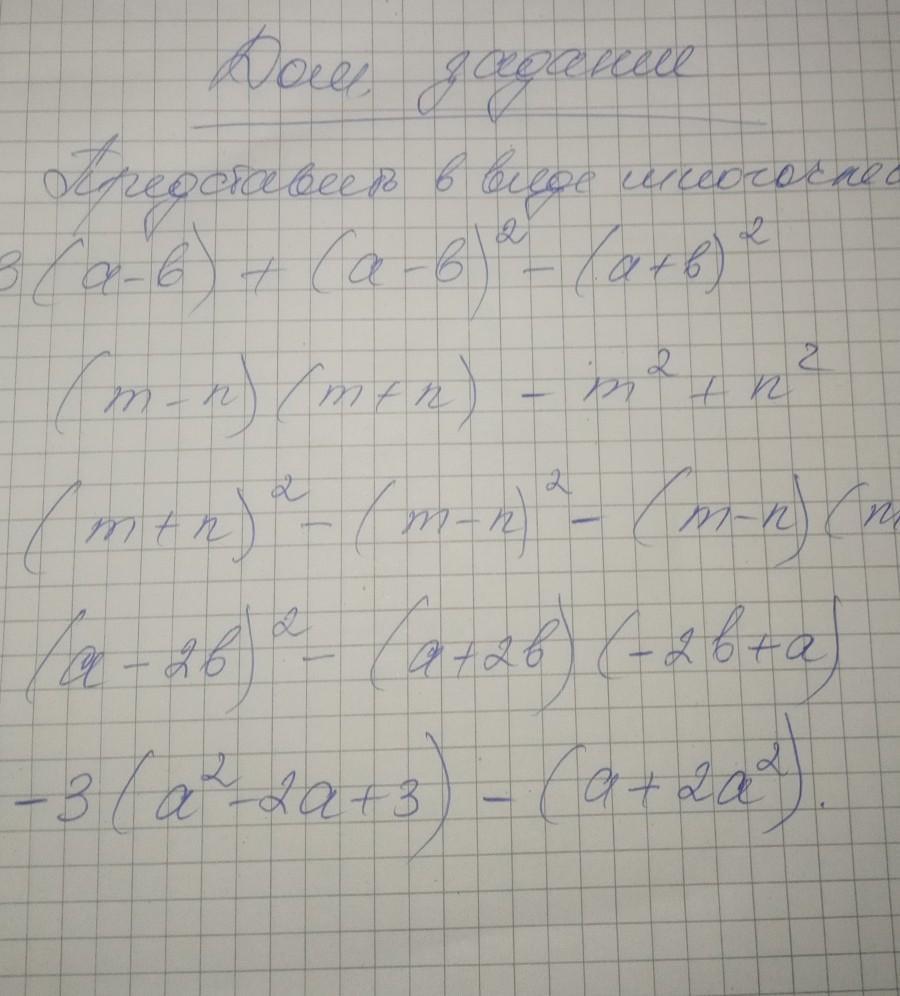 Дом. задание
Представить в виде многочлена
3(a-b) + (a-b)² - (a+b)²
(m-n)(m+n) - m² + n²
(m+n)² - (m-n)² - (m-n)(
(a-2b)² - (a+2b)(-2b+a)
-3(a²-2a+3) - (a+2a²).